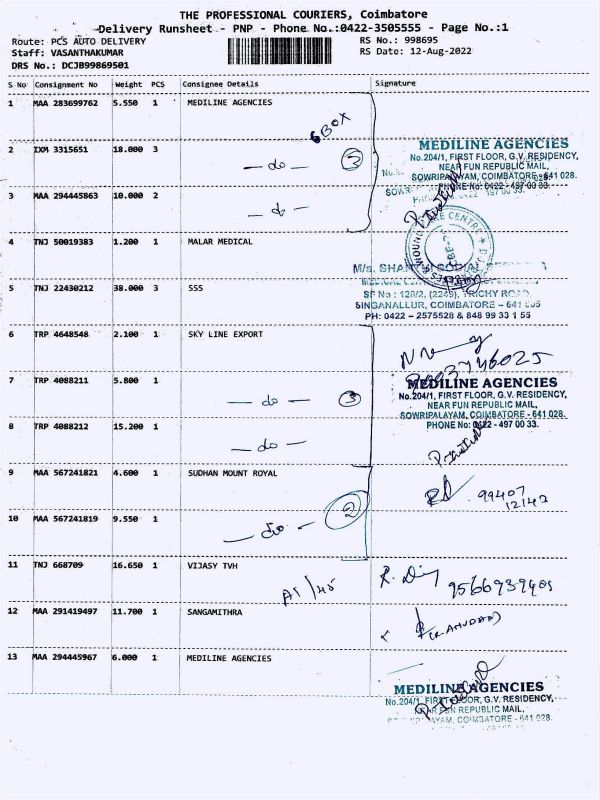 THE PROFESSIONAL COURIERS, Coimbatore
Delivery Runsheet - PNP - Phone No.:0422-3505555 - Page No.:1
Route: PCS AUTO DELIVERY
RS No.: 998695
Staff: VASANTHAKUMAR
RS Date: 12-Aug-2022
DRS No.: DCJB99869501
S No Consignment No Weight PCS Consignee Details Signature
1 MAA 283699762 5.550 1 MEDILINE AGENCIES
6 BOX
2 IXM 3315651 18.000 3
— do — 5
MEDILINE AGENCIES
No.204/1, FIRST FLOOR, G.V. RESIDENCY,
NEAR FUN REPUBLIC MAIL,
SOWRIPALAYAM, COIMBATORE - 641 028.
PHONE No: 0422 - 497 00 33.
3 MAA 294445863 10.000 2
— do —
4 TNJ 50019383 1.200 1 MALAR MEDICAL
5 TNJ 22430212 38.000 3 SSS
SF No : 128/2, (2249), TRICHY ROAD,
SINGANALLUR, COIMBATORE – 641 005
PH: 0422 – 2575528 & 848 99 33 1 55
6 TRP 4648548 2.100 1 SKY LINE EXPORT
7 TRP 4088211 5.800 1
— do — 3
MEDILINE AGENCIES
No.204/1, FIRST FLOOR, G.V. RESIDENCY,
NEAR FUN REPUBLIC MAIL,
SOWRIPALAYAM, COIMBATORE - 641 028.
PHONE No: 0422 - 497 00 33.
8 TRP 4088212 15.200 1
— do —
9 MAA 567241821 4.600 1 SUDHAN MOUNT ROYAL
99407
12143
10 MAA 567241819 9.550 1
— do — 2
11 TNJ 668709 16.650 1 VIJASY TVH
9566939401
12 MAA 291419497 11.700 1 SANGAMITHRA
13 MAA 294445967 6.000 1 MEDILINE AGENCIES
MEDILINE AGENCIES
No.204/1, FIRST FLOOR, G.V. RESIDENCY,
NEAR FUN REPUBLIC MAIL,
COIMBATORE - 641 028.